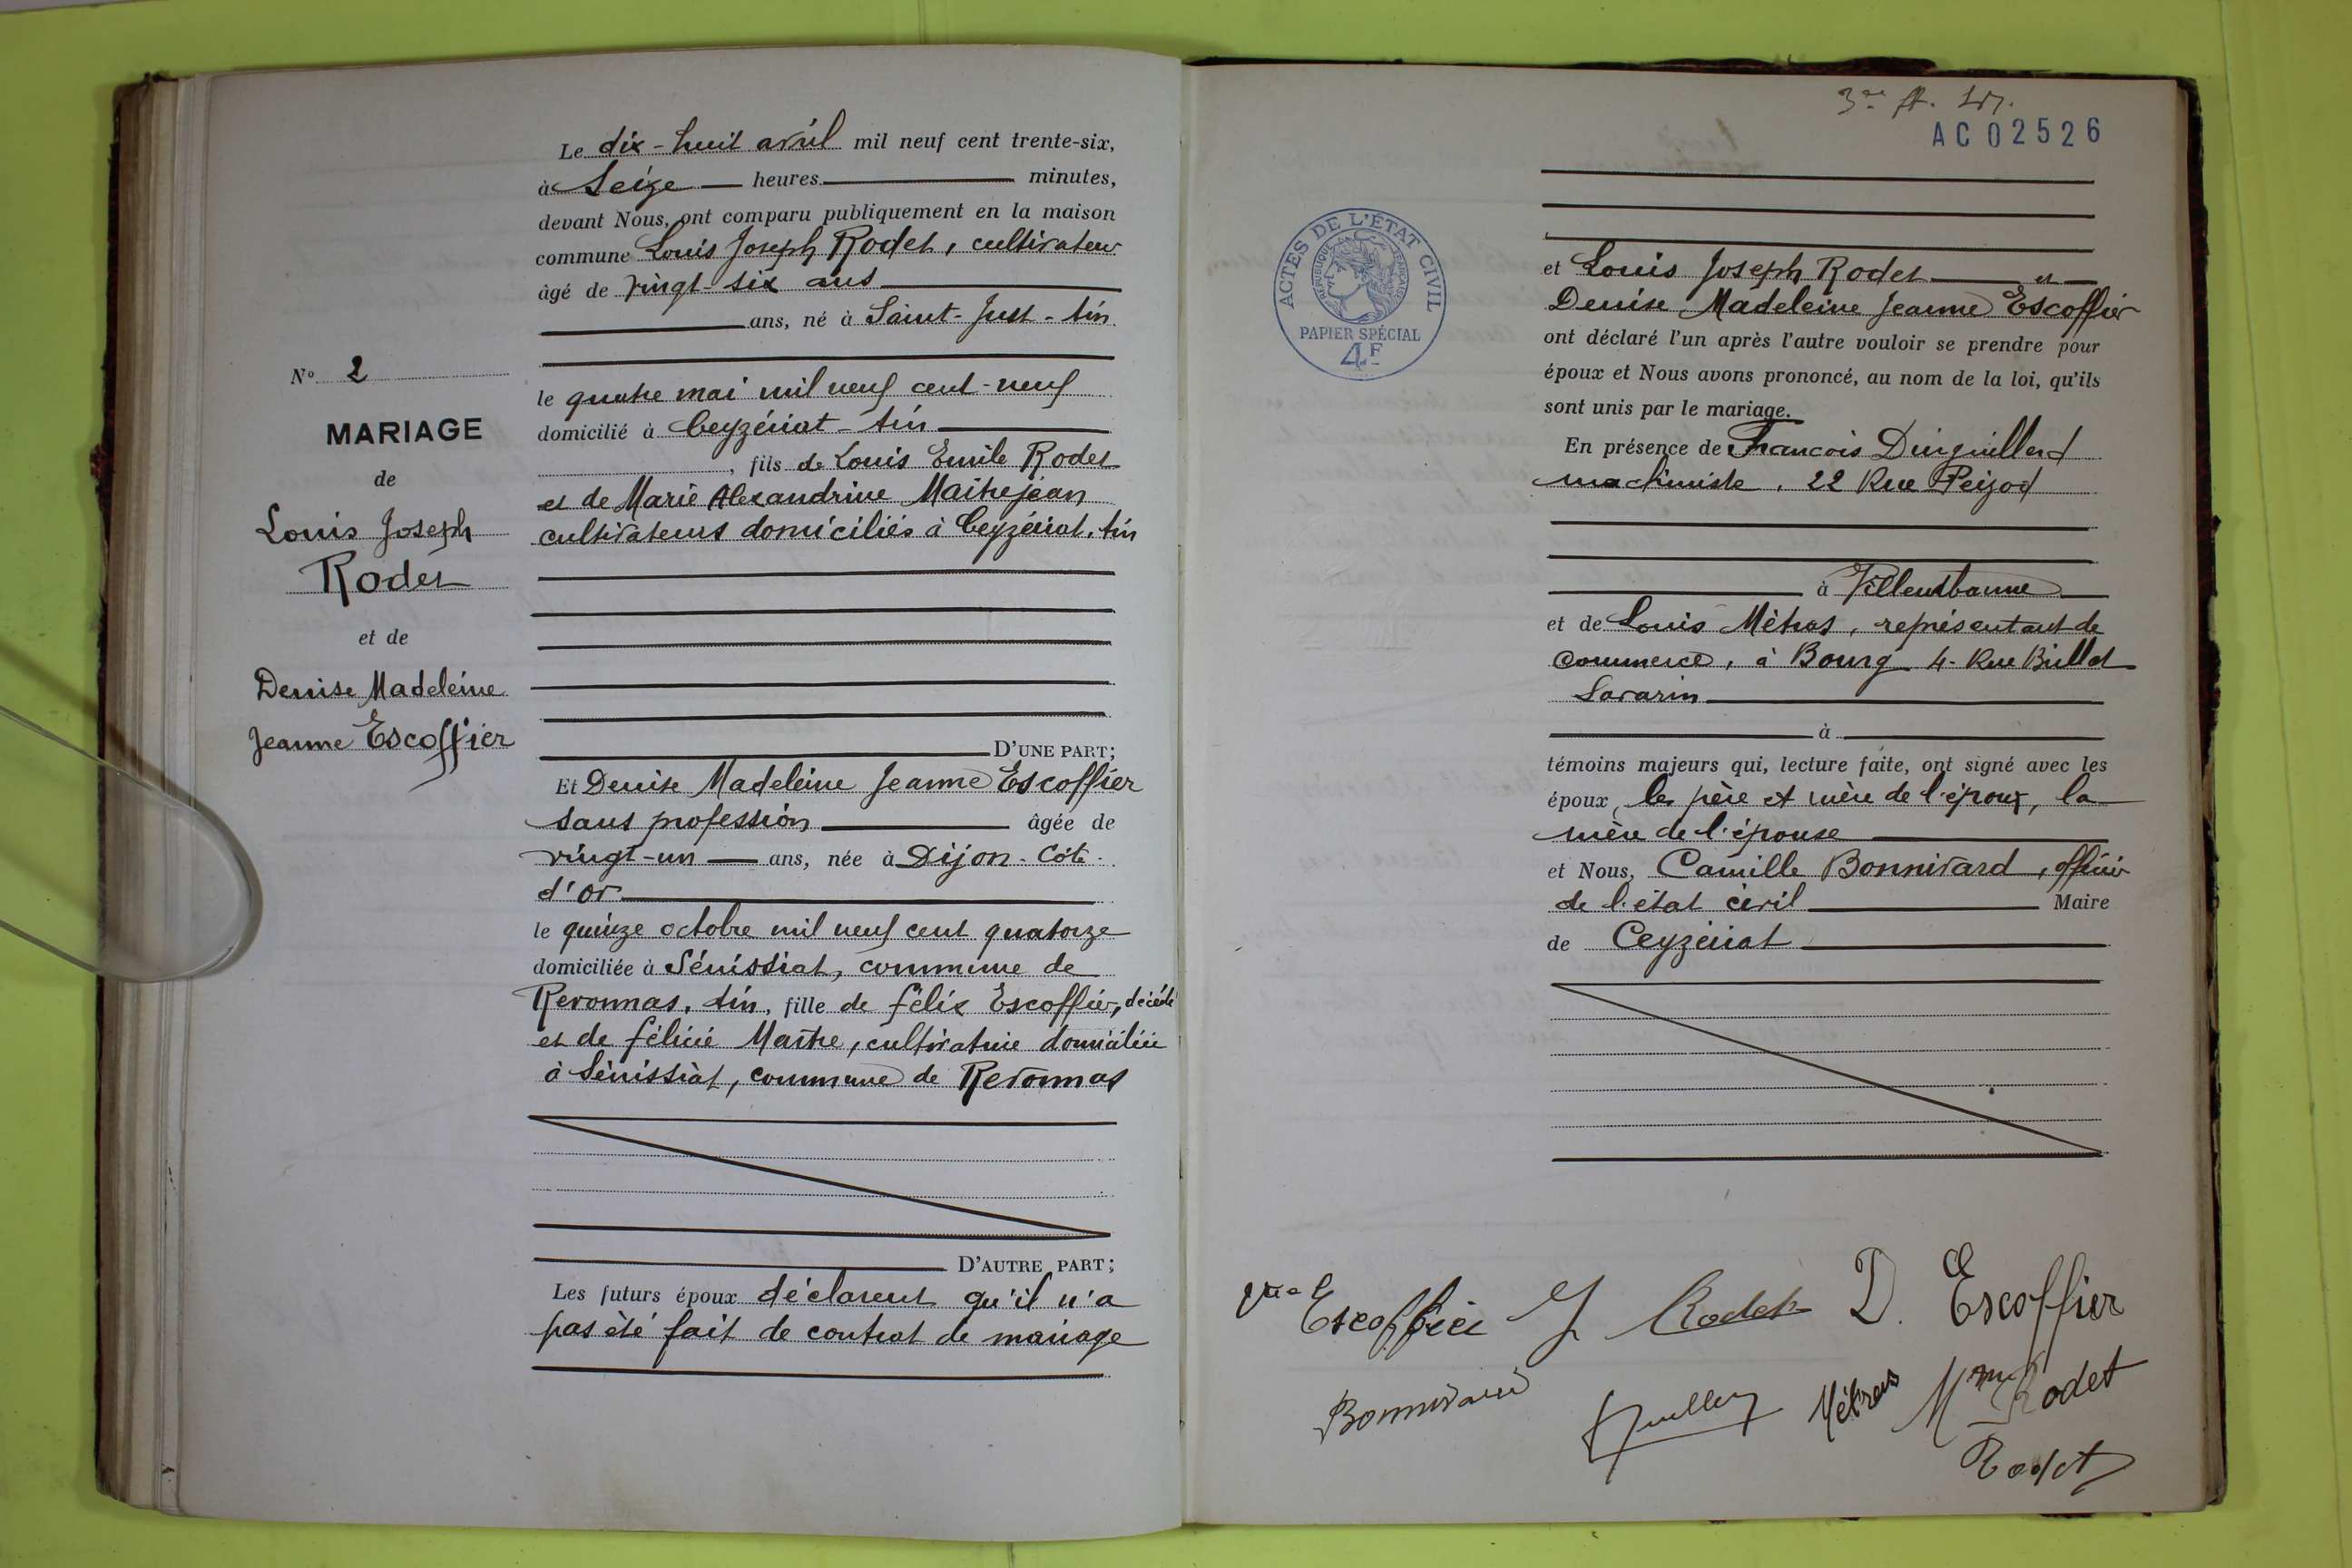 Le dix-huit avril mil neuf cent trente-six,
à Seize heures minutes,
devant Nous, ont comparu publiquement en la maison
commune Louis Joseph Rodet, cultivateur
âgé de vingt-six ans
ans, né à Saint-Just-Ain
le quatre mai mil neuf cent-neuf
domicilié à Ceyzériat-Ain
, fils de Louis Emile Rodet
et de Marie Alexandrine Maitrejean
cultivateurs domiciliés à Ceyzériat. Ain
D'UNE PART;
Et Denise Madeleine Jeanne Escoffier
sans profession âgée de
vingt-un ans, née à Dijon-Côte-
d'or
le quinze octobre mil neuf cent quatorze
domiciliée à Sénissiat, commune de
Revonnas, Ain, fille de félix Escoffier, décédé
et de félicie Maitre, cultivatrice domiciliée
à Sénissiat, commune de Revonnas
D'AUTRE PART;
Les futurs époux déclarent qu'il n'a
pas été fait de contrat de mariage
N° 2
MARIAGE
de
Louis Joseph
Rodet
et de
Denise Madeleine
Jeanne Escoffier
AC02526
ACTES DE L'ÉTAT CIVIL
RÉPUBLIQUE FRANÇAISE
PAPIER SPÉCIAL
4F
et Louis Joseph Rodet et
Denise Madeleine Jeanne Escoffier
ont déclaré l'un après l'autre vouloir se prendre pour
époux et Nous avons prononcé, au nom de la loi, qu'ils
sont unis par le mariage.
En présence de Francois
machiniste, 22 Rue
à Villeurbanne
et de Louis Métras, représentant de
commerce, à Bourg 4-Rue Brillat
Savarin
à
témoins majeurs qui, lecture faite, ont signé avec les
époux, les père et mère de l'époux, la
mère de l'épouse
et Nous, Camille Bonnivard, officier
de l'état civil Maire
de Ceyzériat
Escoffier Rodet D. Escoffier
Bonnivard Métras Mme Rodet
Rodet